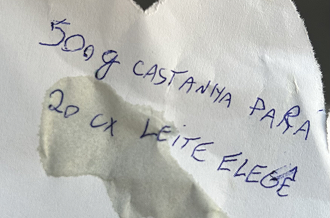 500g CASTANHA PARÁ
20 CX LEITE ELEGÊ